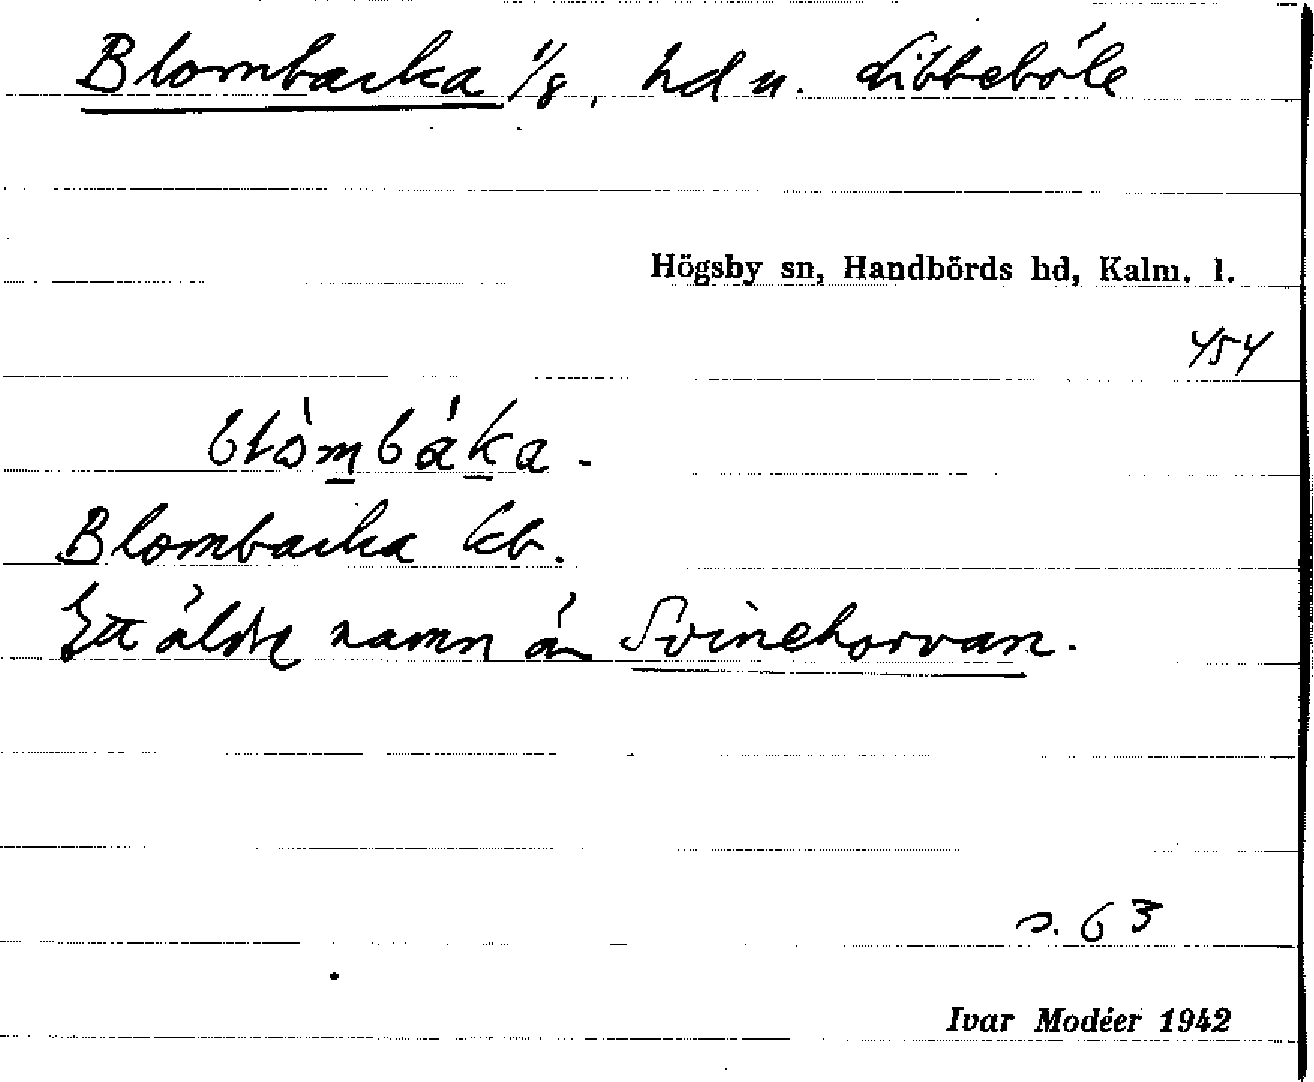 Blombacka 1/8, hd u. Libbeböle
Högsby sn, Handbörds hd, Kalm. l.
454
blòmbáka.
Blombacka kb.
Ett äldre namn än Svinehorvan.
s. 63
Ivar Modéer 1942